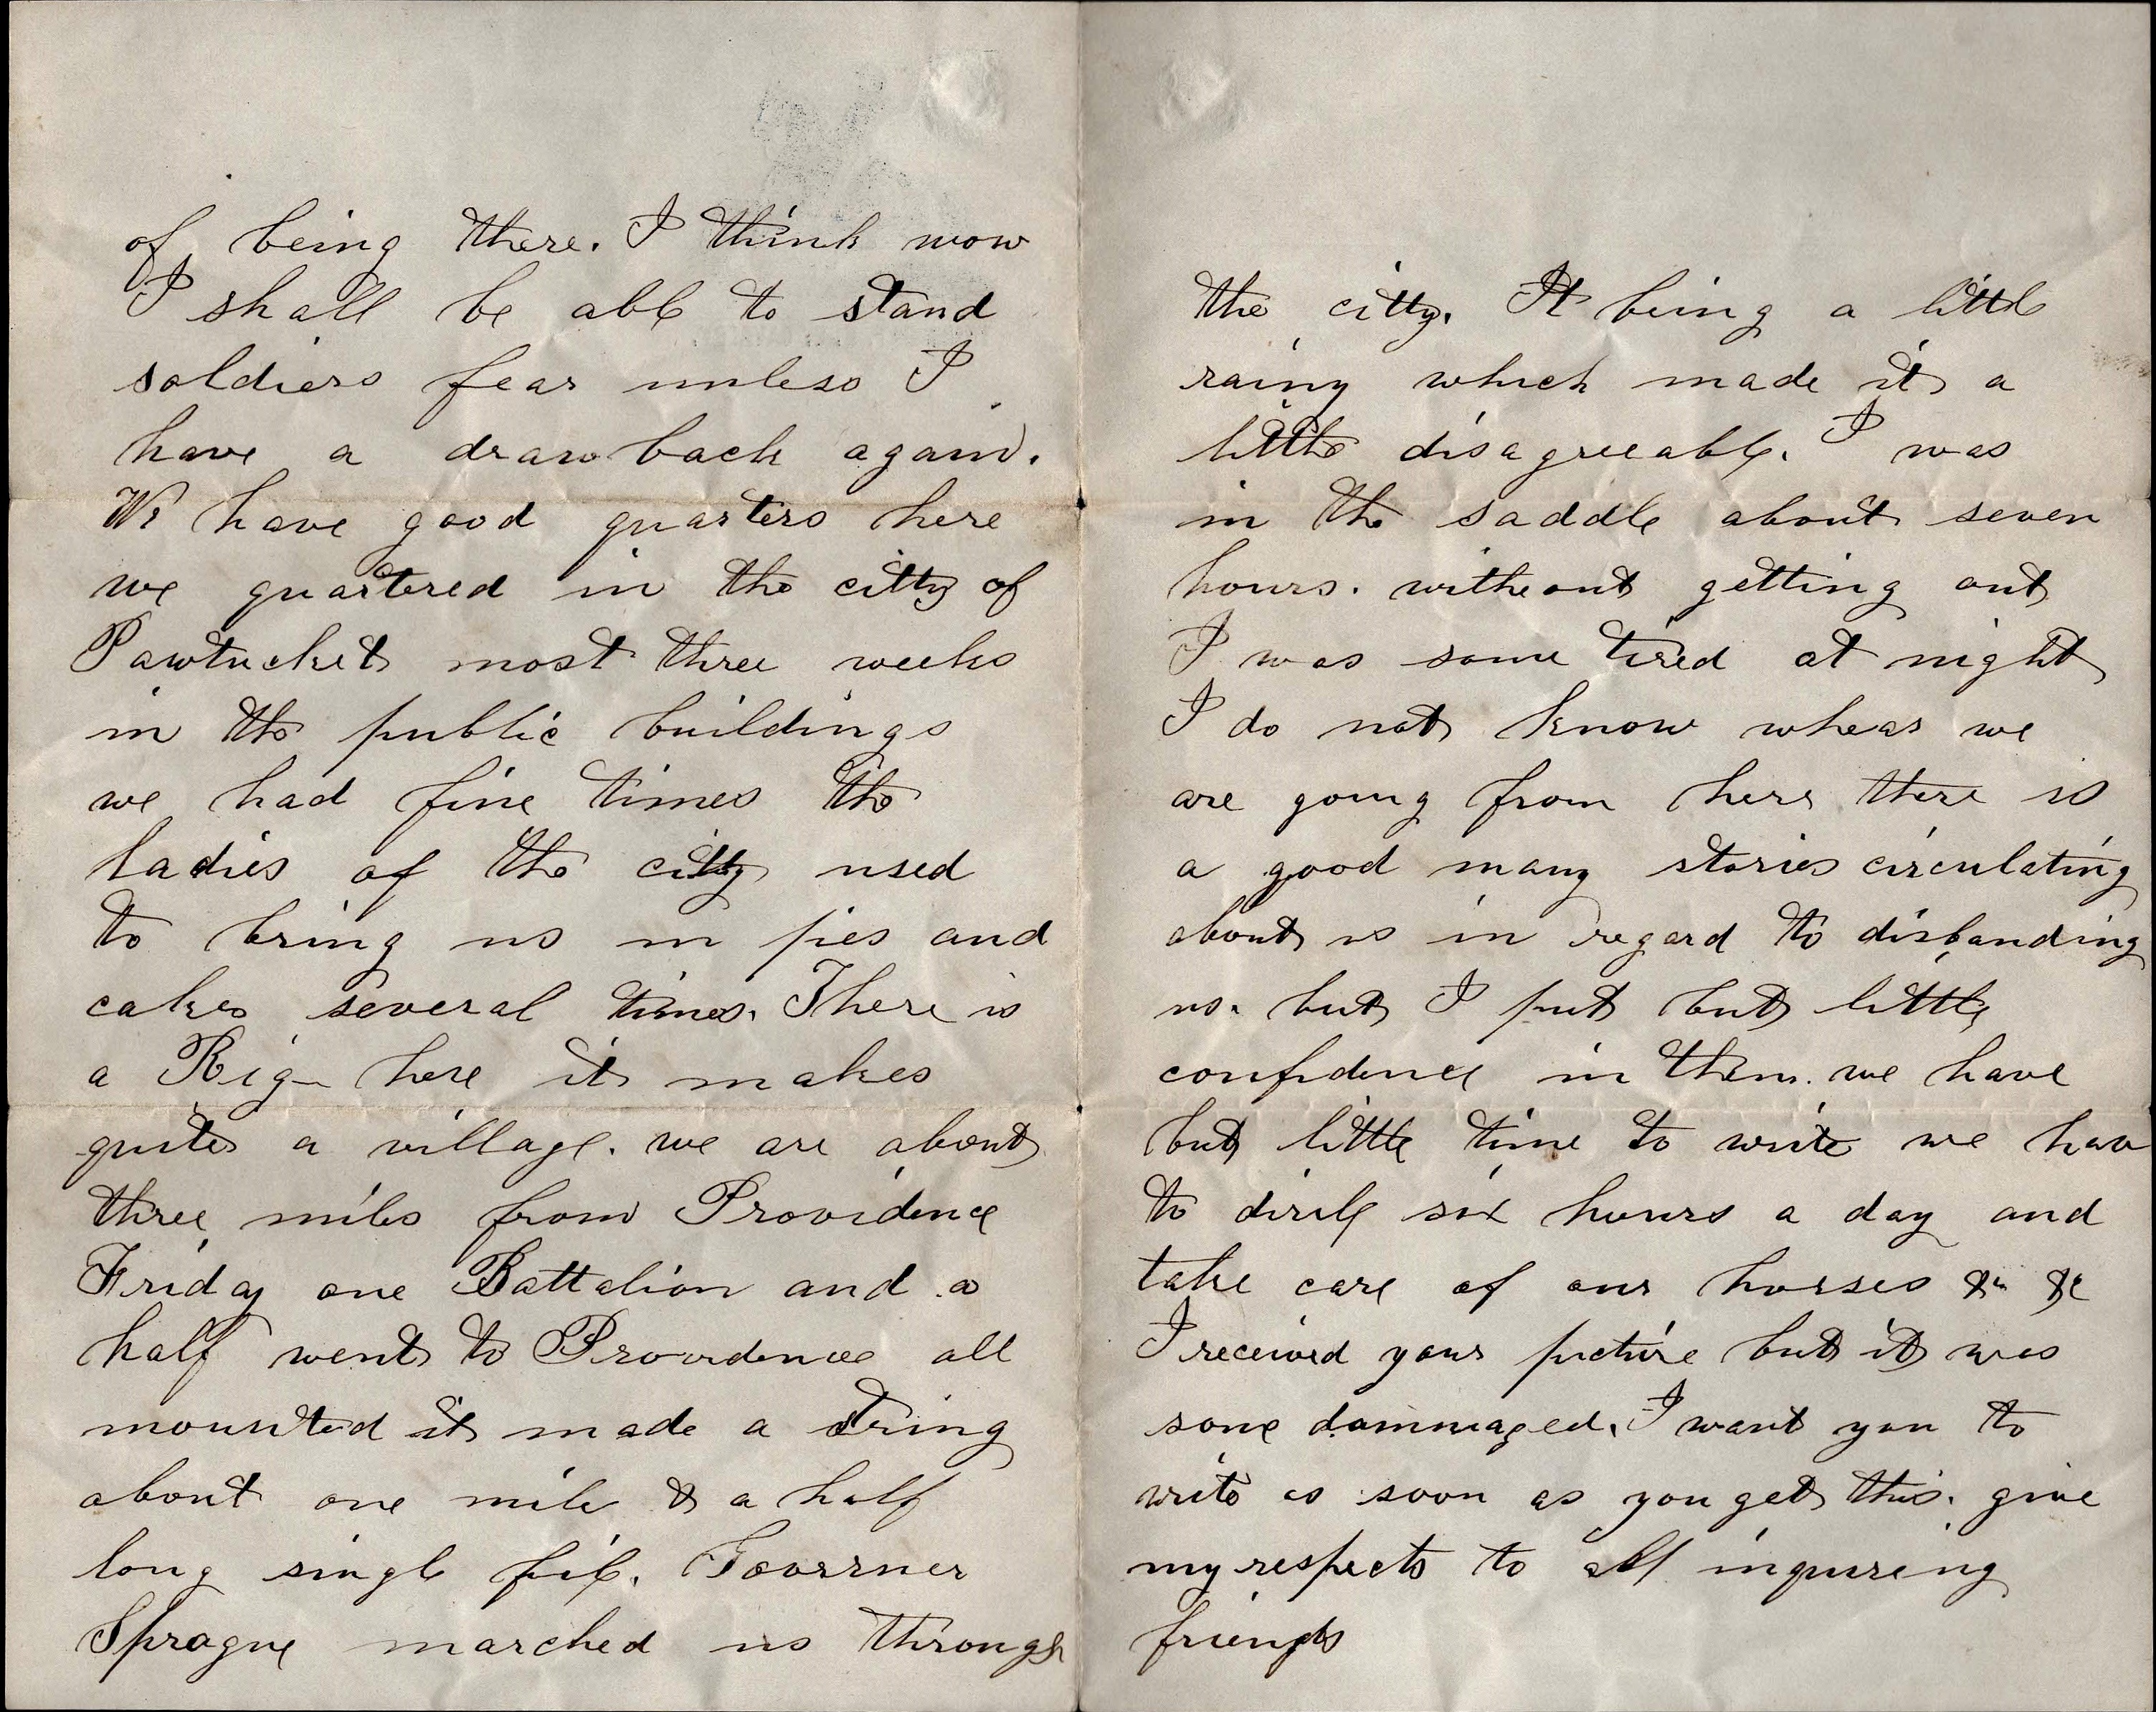 of being there. I think now
I shall be able to stand
soldiers fear unless I
have a draw back again.
We have good quarters here
we quartered in the citty of
Pawtucket most three weeks
in the public buildings
we had fine times the
ladies of the citty used
to bring us in pies and
cakes several times. There is
a Reg here it makes
quite a village. we are about
three miles from Providence
Friday one Battalion and a
half went to Providence all
mounted it made a string
about one mile & a half
long single file. Governer
Sprague marched us through
the citty. It being a little
rainy which made it a
little disagreeable. I was
in the saddle about seven
hours. witheout getting out
I was some tired at night
I do not know whear we
are going from here there is
a good many stories circulating
about us in regard to disbanding
us. but I put but little
confidence in them. we have
but little time to write we hav
to dirile six hours a day and
take care of our horses &c &c
I received your picture but it was
some dammaged. I want you to
write as soon as you get this. give
my respects to all inqureing
friends